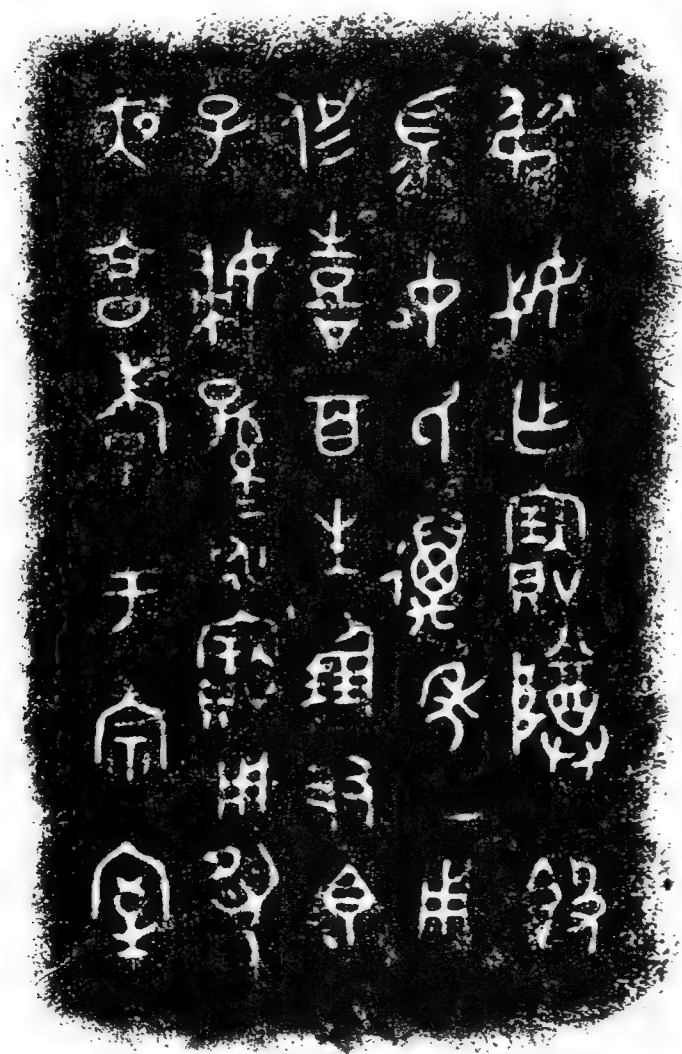 弔妣乍寶尊𣪘
眔中氏萬年用
侃喜百生倗友眔
子婦子孫永寶用夙
夜享孝于宗室